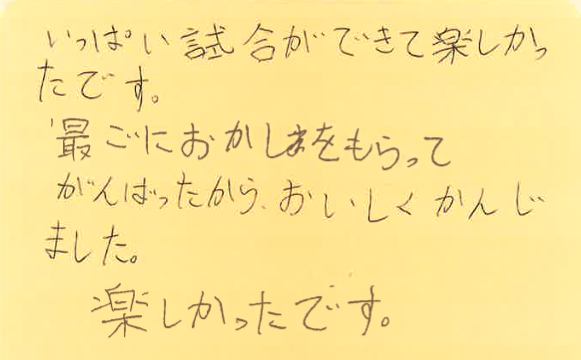 いっぱい試合ができて楽しかっ
たです。
最ごにおかしをもらって
がんばったから、おいしくかんじ
ました。
楽しかったです。